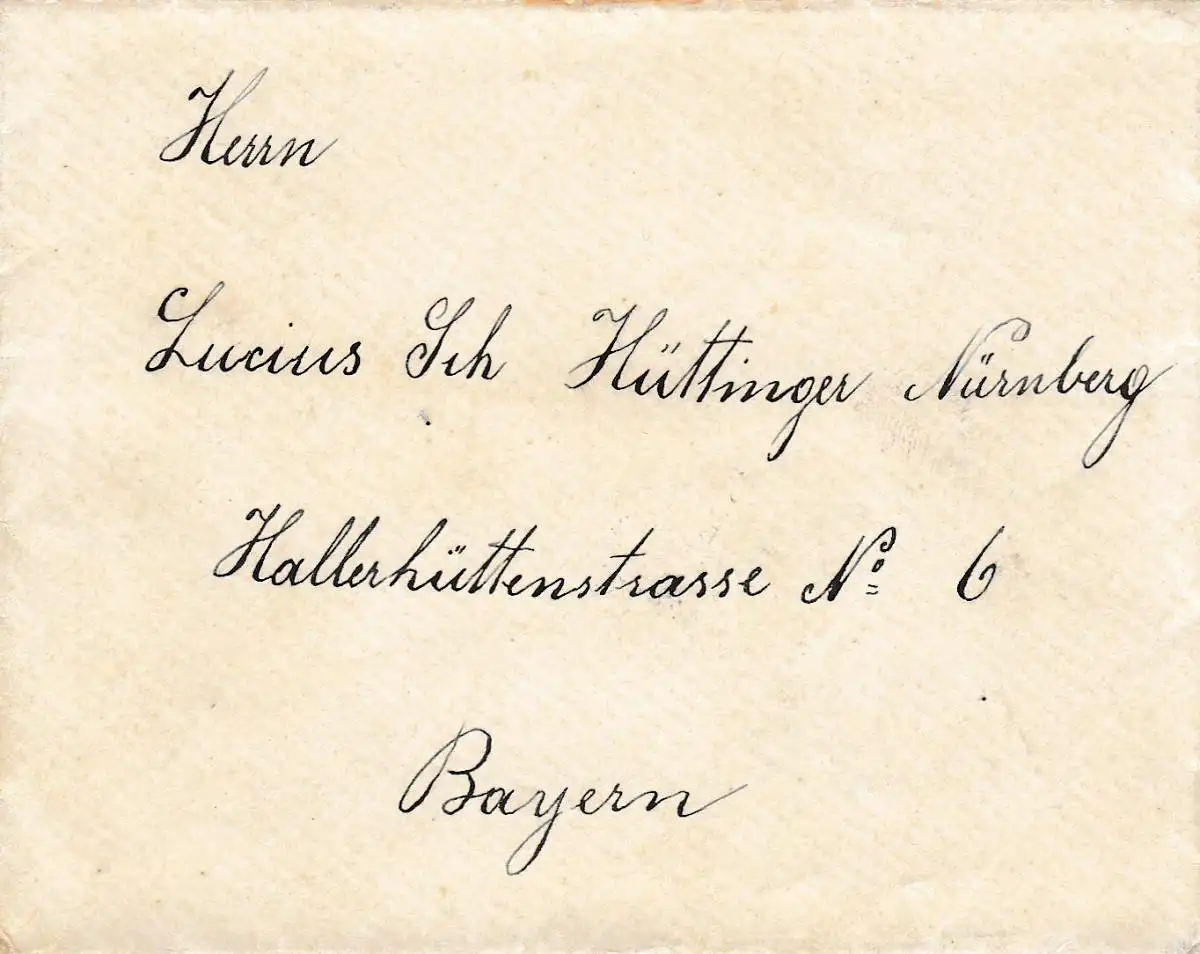 Herrn
Lucius Sch Hüttinger Nürnberg
Hallerhüttenstrasse Nº 6
Bayern